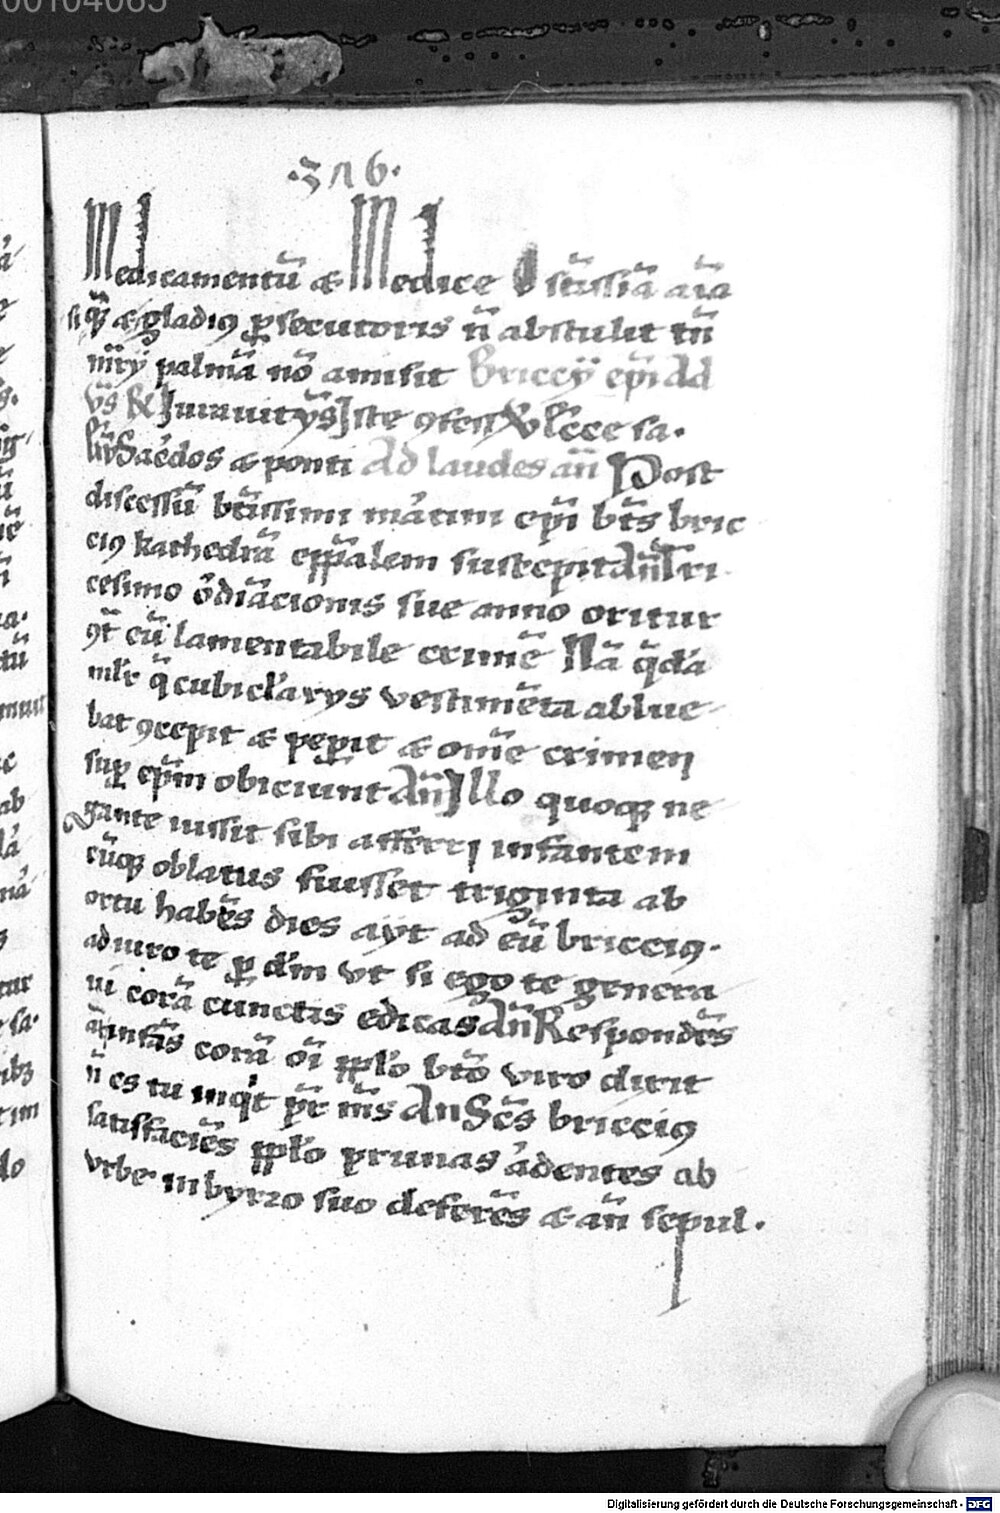 00104065
.376.
Medicamentū & Medice O sc̄issīa aīa
si quā & gladiꝯ ꝑsecutoris n̄ abstulit tn̄
mr̄ij palmā nō amisit Briccij epī Ad
vs̄ & Jurauit ys̄ Iste ꝯfess Lēcce sa.
Saćdos & ponti Ad laudes an̄ Post
discessū bt̄issimi mar̄tini epī bt̄s bric
ciꝯ kathedrā epp̄alem suscepit An̄ Tri
cesimo ordiācionis sue anno oritur
ꝯt̄ eū lamentabile crimē Nā q̄dā
mlr̄ q̄ cubicl'arijs vestimēta ablue
bat ꝯcepit & peꝑit & om̄e crimen
suꝑ ep̄m obiciunt An̄ Illo quoqꝫ ne
gante iussit sibi afferri infantem
cūqꝫ oblatus fuisset triginta ab
ortu habēs dies ayt ad eū bricciꝯ.
adiuro te ꝑ dn̄m vt si ego te genera
ui corā cunctis edicas An̄ Respondēs
āt infās corā oī ppl'o btō viro dixit
n̄ es tu inqt pr̄ m̄s An Scs̄ bricciꝯ
satisfaciēs ppl'o prunas ardentes ab
vrbe in byrro suo deferēs & an̄ sepul.
Digitalisierung gefördert durch die Deutsche Forschungsgemeinschaft - DFG